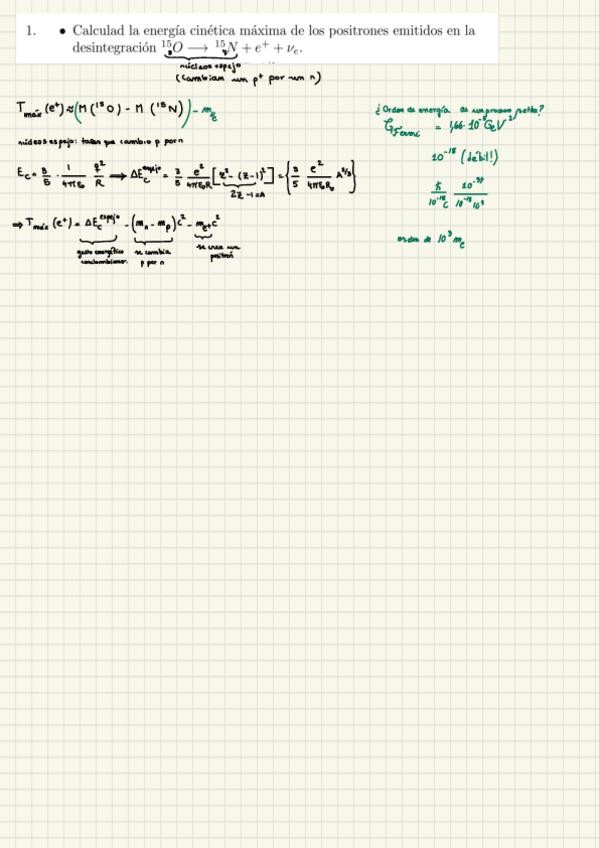 1. • Calculad la energía cinética máxima de los positrones emitidos en la
desintegración ¹⁵₈O → ¹⁵₇N + e⁺ + νₑ.
núcleos espejo
(cambian un p⁺ por un n)
Tmáx (e⁺) ≈ (M (¹⁵O) - M (¹⁵N)) - mₑ
núcleos espejo: tales que cambio p por n
E_c = 3/5 · 1/4πε₀ q²/R → ΔE_c^espejo = 3/5 e²/4πε₀R [z² - (z-1)²] = {3/5 e²/4πε₀R₀ A^2/3}
2z-1=A
⇒ Tmáx (e⁺) = ΔE_c^espejo - (mₙ - mₚ)c² - mₑ₊c²
gasto energético coulombiano.
se cambia p por n
se crea un positrón
¿Orden de energía de un proceso
G_Fermi = 1,166·10⁻⁵ GeV⁻²
10⁻¹⁸ (débil!)
orden de 10³ mₑ